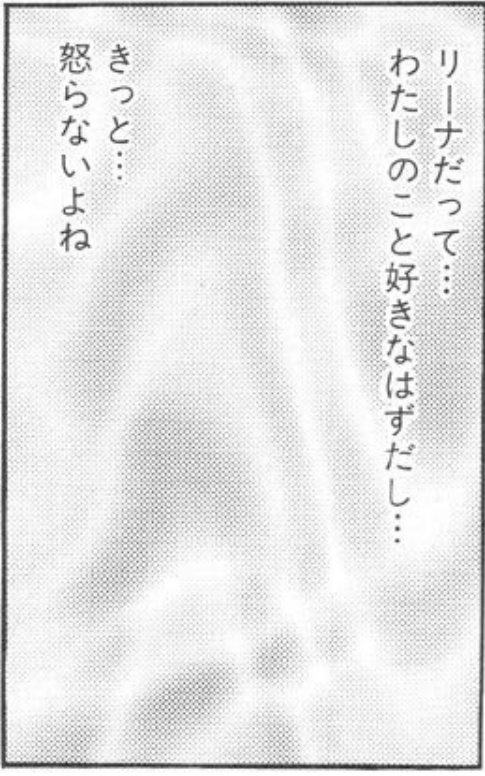 リーナだって…
わたしのこと好きなはずだし…
きっと…
怒らないよね